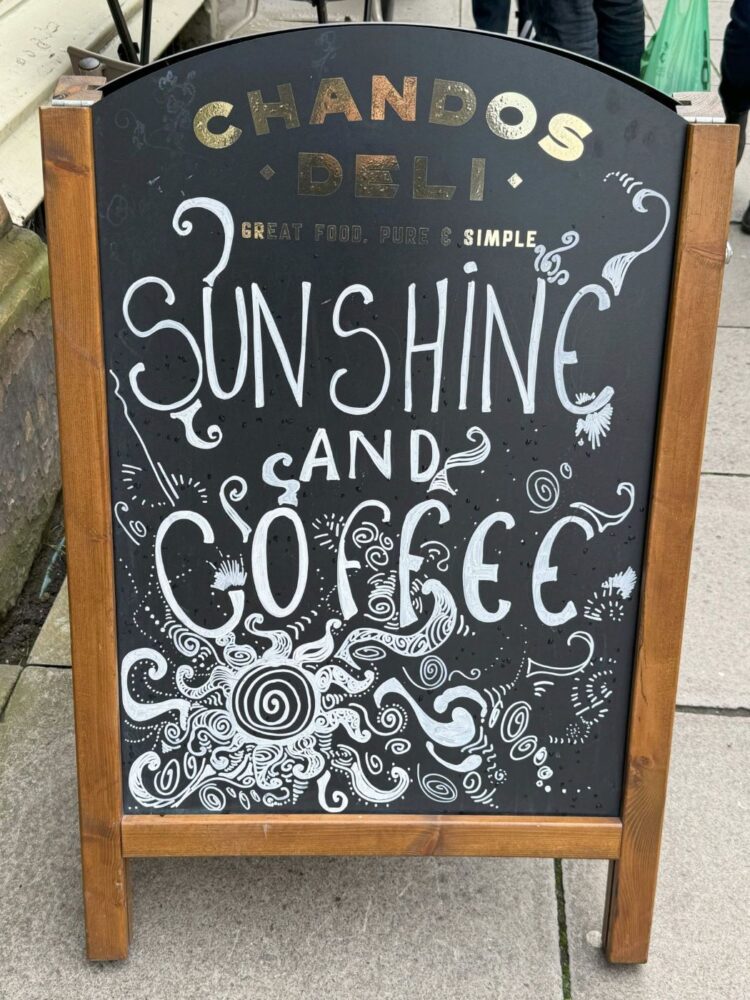 CHANDOS
DELI
GREAT FOOD. PURE & SIMPLE
SUNSHINE
AND
COFFEE